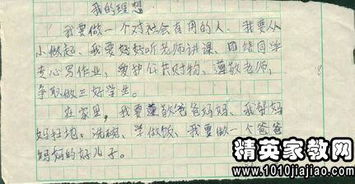 我的理想
我要做一个对社会有用的人。我要从
小做起、我要好好听老师讲课、团结同学
专心写作业，爱护公共财物、尊敬老师，
争取做三好学生。
在家里，我要尊敬爸爸妈妈、我帮妈
妈扫地、洗碗、学做饭、我要做一个爸爸
妈妈的好儿子。
精英家教网
www.1010jiajiao.com